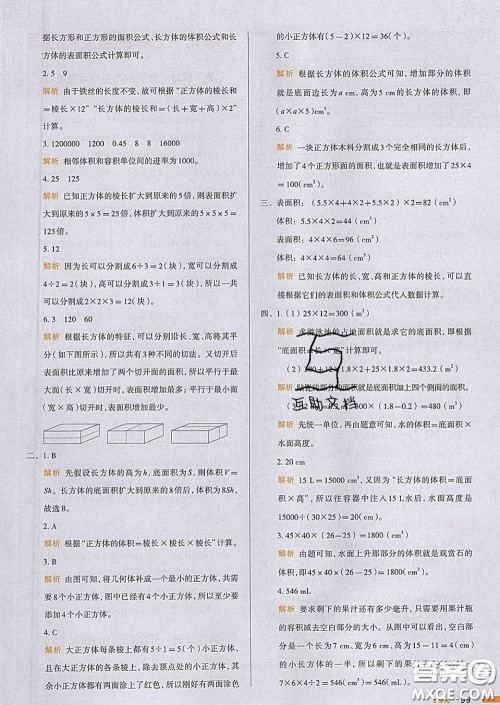 据长方形和正方形的面积公式、长方体的体积公式和长
方体的表面积公式计算即可。
2. 5 9
解析 由于铁丝的长度不变，故可根据“正方体的棱长和
=棱长×12”“长方体的棱长和=(长+宽+高)×2”
计算。
3. 1200000 1200 0.45 8 8 16000
解析 相邻体积和容积单位间的进率为1000。
4. 25 125
解析 已知正方体的棱长扩大到原来的5倍，则表面积
扩大到原来的5×5=25倍，体积扩大到原来的5×5×5=
125倍。
5. 12
解析 因为长可以分割成6÷3=2(块)，宽可以分割成
4÷2=2(块)，高可以分割成3÷1=3(块)，所以一共
可以分割成2×2×3=12(块)。
6. 3 120 60
解析 根据长方体的特征，可以分别从长、宽、高将其平
分(如下图)，所以共有3种不同的切法。又切开后
表面积比原来增加了两个切开面的面积，即平行于最大
面(长×宽)切开时，表面积增加最多；平行于最小面
(宽×高)切开时，表面积增加最少。
二、1. B
解析 先假设长方体的高为h，底面积为S，则体积V=
Sh。根据题意可知，长方体的底面积扩大到原来的8倍，
故选B。
2. A
解析 根据“正方体的体积=棱长×棱长×棱长”计算。
3. B
解析 由图可知，将几何体补成一个最小的正方体，共需
要8个小正方体，则至少还需要8-6=2(个)小正
方体。
4. C
解析 大正方体每条棱上都有5÷1=5(个)小正方体，
且在大正方体的每条棱上，除去顶点处的小正方体外，其
余小正方体都有两个面上涂上了红色，所以两面涂红色
的小正方体有(5-2)×12=36(个)。
5. C
解析 根据长方体的体积公式可知，增加部分的体积就
是底面边长为a cm，高为5 cm的长方体的体积，即
(a×a×5)cm³。
6. C
解析 一块正方体木料分割成3个完全相同的长方体后，
增加了4个正方形面的面积，也就是表面积增加了25×4
=100(cm²)。
三、表面积：(5.5×4+4×2+5.5×2)×2=82(cm²)
体积：5.5×4×2=44(cm³)
表面积：4×4×6=96(cm²)
体积：4×4×4=64(cm³)
解析 已知长方体的长、宽、高和正方体的棱长，可以直接
根据它们的表面积和体积公式代入数据计算。
四、1. (1)25×12=300(m²)
解析 求游泳池的占地面积就是求它的底面积，即根据
“底面积=长×宽”计算即可。
互助文档
解析 先统一单位，再由题意可知，水面的高度是
2. 20 cm
解析 15 L=15000 cm³，根据“长方体的体积=底面积
×高”，所以往长方体容器中注入15 L水后，水面高为
15000÷(30×25)=20(cm)。
3. 45×40×(26-25)=1800(cm³)
解析 由题可知，水面上升那部分的体积就是观赏石的
体积，即45×40×(26-25)=1800(cm³)。
4. 546 mL
解析 要求剩下的果汁还有多少毫升，只需要用果汁瓶
的容积减去空白部分的大小。从图中可以看出，空白部
分的大小是一个长为7 cm，宽为6 cm，高为25-12=
13(cm)的长方体的一半，所以剩下果汁的体积为25×
7×6-7×6×(25-12)÷2=546(cm³)=546(mL)。
99
答案圈
MXQE.COM